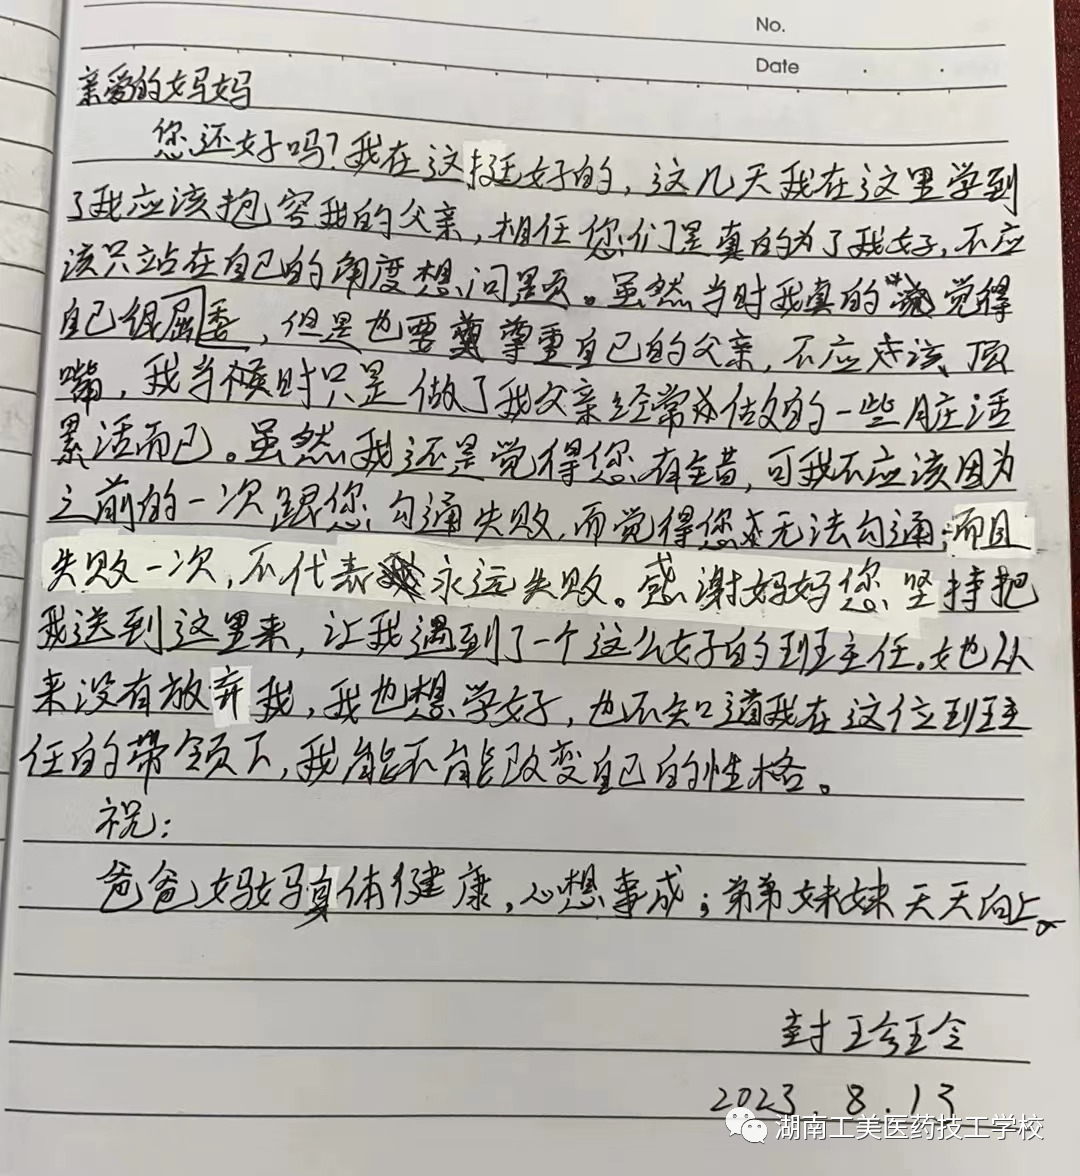 No.
Date
亲爱的妈妈
您还好吗？我在这挺好的，这几天我在这里学到
了我应该抱容我的父亲，相任您们是真的为了我好，不应
该只站在自己的角度想问题。虽然当时我真的觉得
自己很屈委，但是也要尊重自己的父亲，不应该顶
嘴，我当候时只是做了我父亲经常做的一些脏活
累活而已。虽然我还是觉得您有错，可我不应该因为
之前的一次跟您勾通失败，而觉得您无法勾通，而且
失败一次，不代表永远失败。感谢妈妈您坚持把
我送到这里来，让我遇到了一个这么好的班主任。她从
来没有放弃我，我也想学好，也不知道我在这位班主
任的带领下，我能不能改变自己的性格。
祝：
爸爸妈妈身体健康，心想事成；弟弟妹妹天天向上。
封玲玲
2023.8.13
湖南工美医药技工学校